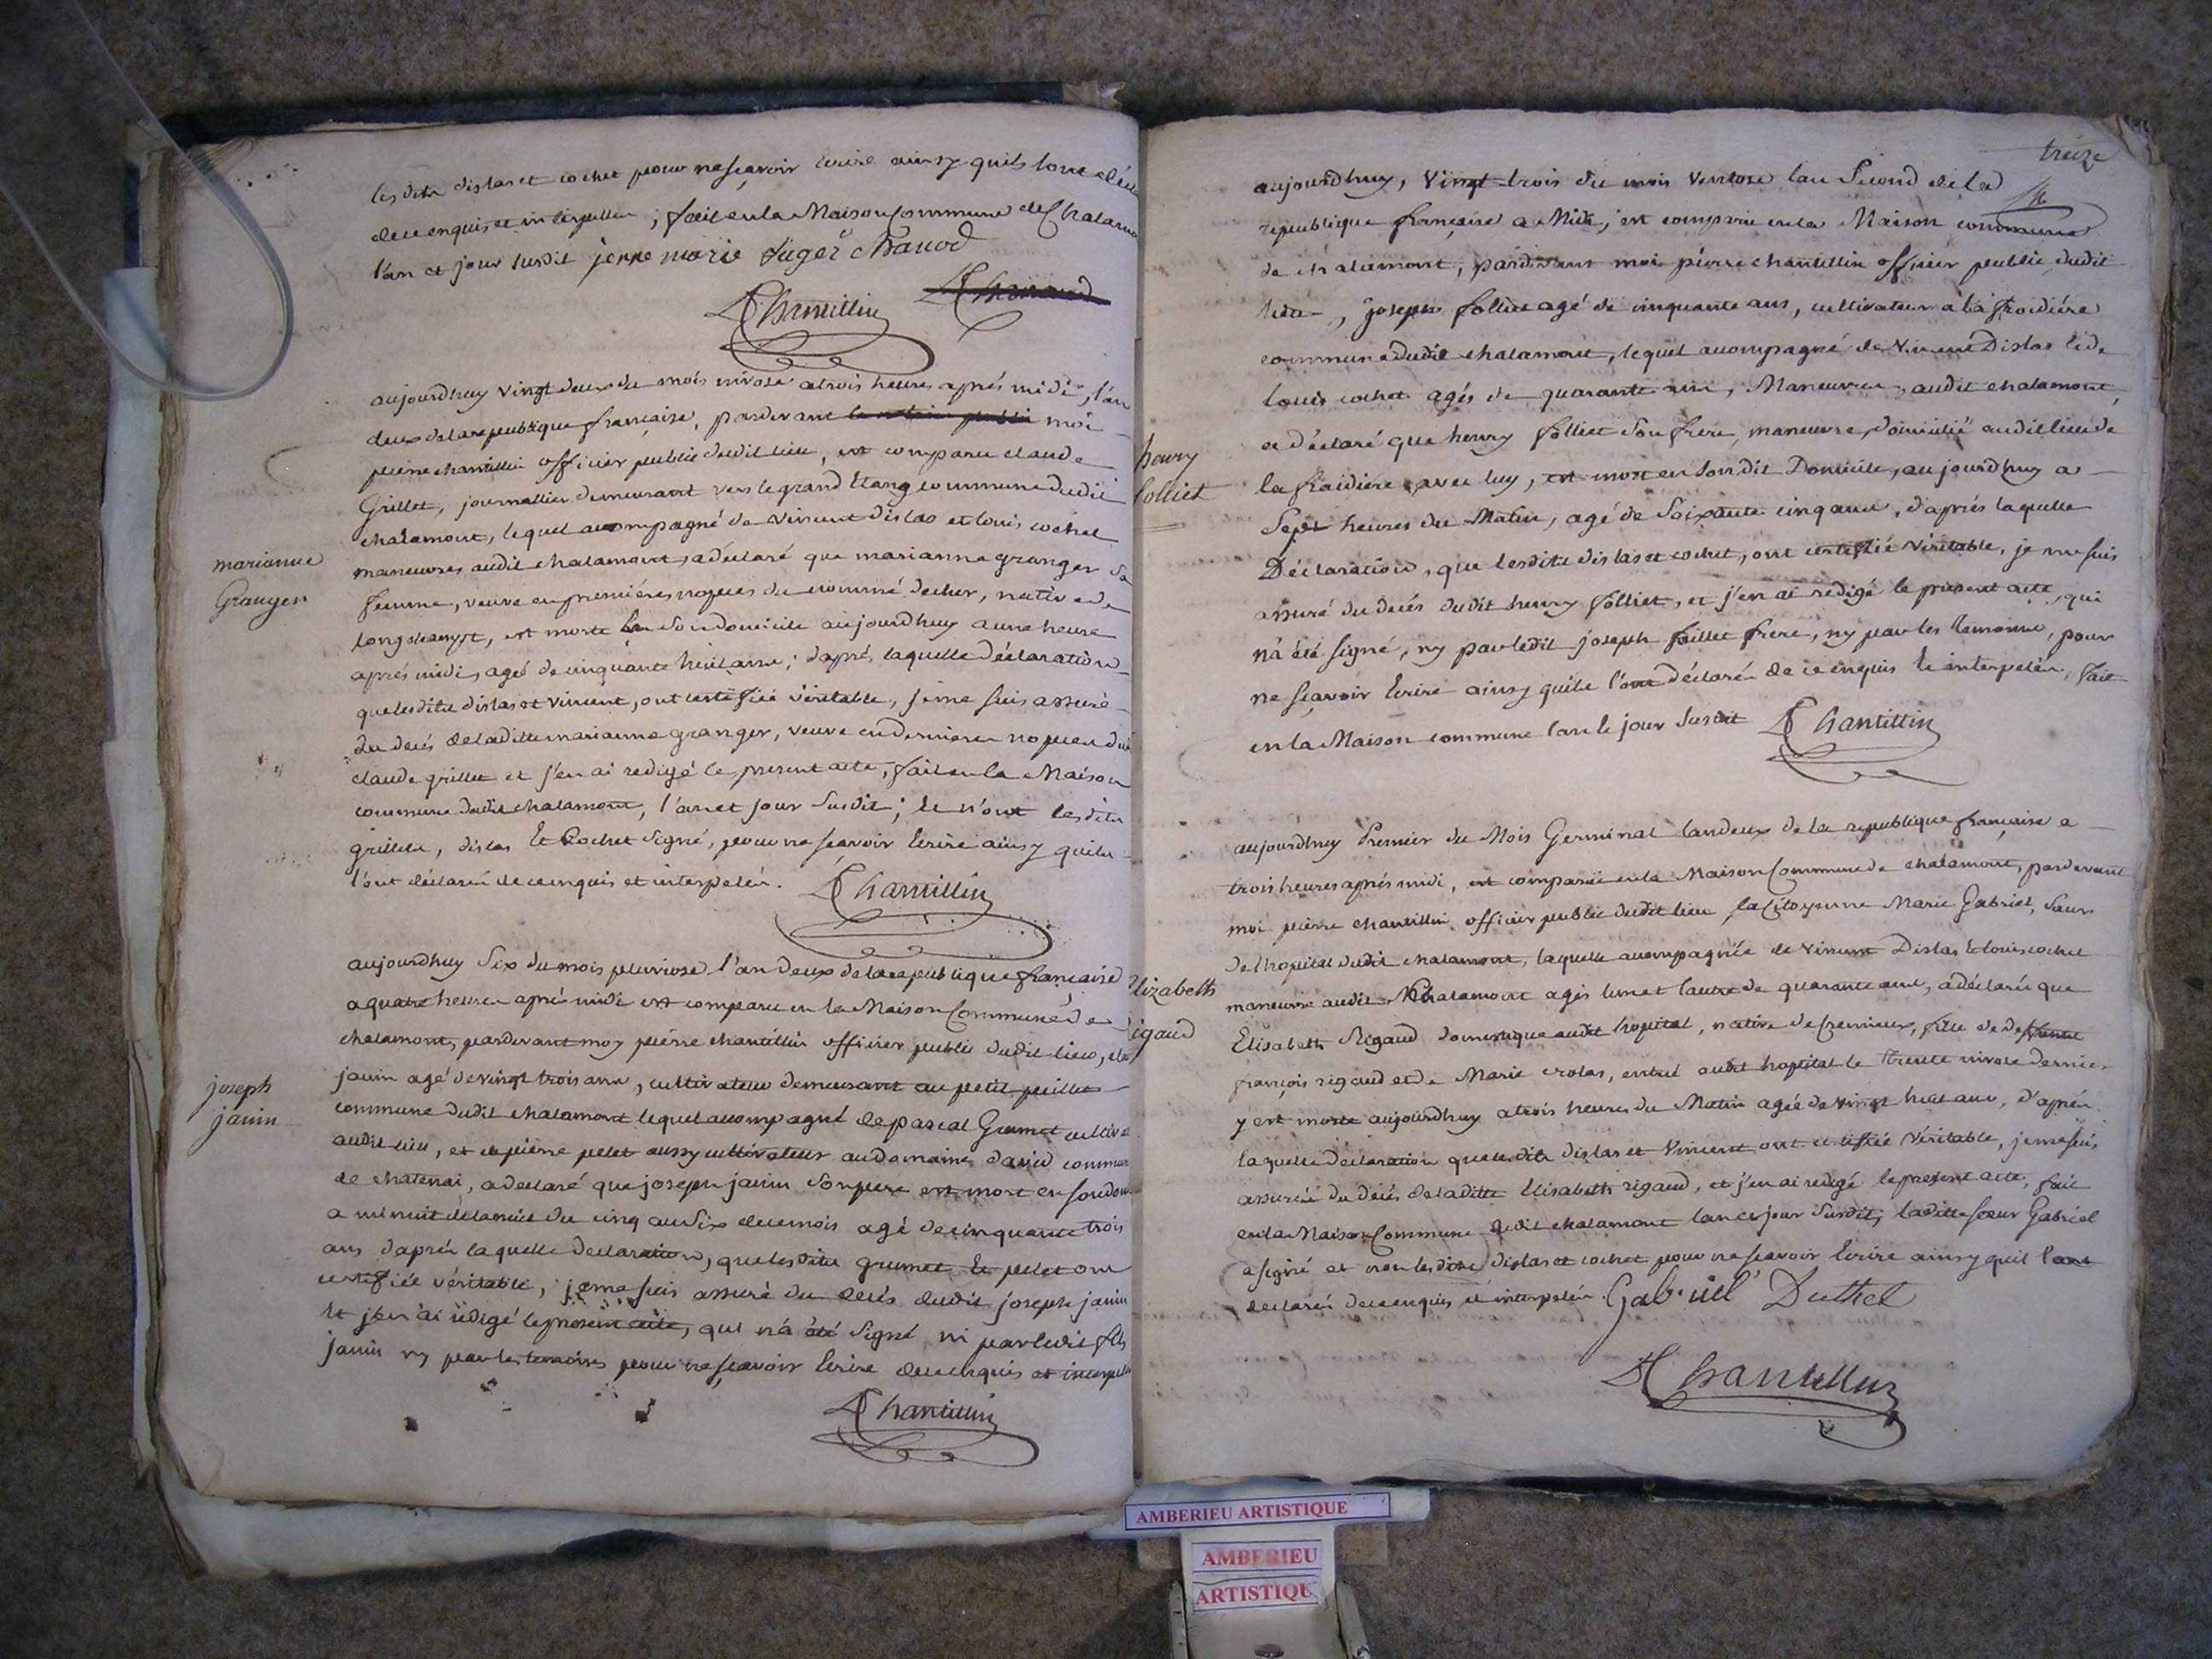 les dits dislas et cochet pour ne sçavoir écrire ainsy quils lont décla
de ce enquis et interpellés ; fait en la Maison Commune de Chalamo
l'an et jour susdit jenne marie Suger Chanod
PChantillin
aujourdhuy vingt deux du mois nivose a trois heures après midi, l'an
deux de la republique française, pardevant moi
pierre chantillin officier public dudit lieu, est comparu claude
Grillet, journallier demeurant vers le grand Etang commune dudit
chalamont, lequel accompagné de vincent dislas et louis cochet
maneuvres audit chalamont, a déclaré que marianne granger sa
marianne
Granger
femme, veuve en premières nopces du nommé decher, native de
longchamp, est morte en son domicile aujourdhuy a une heure
après midi, agé de cinquante huit ans ; d'après laquelle déclaration
que lesdits dislas et vincent, ont certifiée véritable, je me suis assuré
du decés de laditte marianne granger, veuve en dernieres nopces du
claude grillet et j'en ai redigé le present acte, fait en la Maison
commune dudit chalamont, l'an et jour susdit ; et n'ont lesdits
grillet, dislas Et Cochet signé, pour ne sçavoir Ecrire ainsy quils
l'ont déclaré de ce enquis et interpelés. PChantillin
aujourdhuy six du mois pluviose l'an deux de la republique française
a quatre heures après midi est comparu en la Maison Commune de
chalamont, pardevant moy pierre chantillin officier public dudit lieu,
janin agé de vingt trois ans, cultivateur demeurant au petit
joseph
janin
commune dudit chalamont lequel accompagné de pascal Grumet cultiv
audit lieu, et de pierre pelet aussy cultivateur au domaine david commun
de chatenai, a declaré que joseph janin son pere est mort en son dom
a minuit de la nuit du cinq au six de ce mois agé de cinquante trois
ans d'après laquelle declaration, que lesdits grumet et pelet ont
certifiée véritable, je me suis assuré du decés dudit joseph janin
et j'en ai redigé le present acte, qui n'a été signé ni par ledit fils
janin ny par les temoins pour ne sçavoir Ecrire de ce enquis et interpellé
PChantillin
treize
aujourdhuy, vingt trois du mois ventose lan second de la
republique française a Midi, est comparu en la Maison commune
de chalamont, pardevant moi pierre chantillin officier public dudit
lieu, joseph folliet agé de cinquante ans, cultivateur a la froidière
commune dudit chalamont, lequel accompagné de Vincent Dislas et de
louis cochet agés de quarante ans, Maneuvres audit chalamont,
a déclaré que henry folliet son frere, maneuvre, domicilié audit lieu de
henry
folliet
la froidière avec luy, est mort en sondit Domicile, aujourdhuy a
sept heures du Matin, agé de soixante cinq ans, d'après laquelle
Déclaration, que lesdits dislas et cochet, ont certifiée véritable, je me suis
assuré du decés dudit henry folliet, et j'en ai redigé le present acte, qui
n'a été signé, ny par ledit joseph foillet frere, ny par les temoins, pour
ne sçavoir Ecrire ainsy quils l'ont déclaré de ce enquis et interpelés, fait
en la Maison commune lan et jour susdit PChantillin
aujourdhuy Premier du Mois Germinal lan deux de la republique française a
trois heures après midi, est comparüe en la Maison Commune de chalamont, pardevant
moi pierre chantillin officier public dudit lieu, la Citoyenne Marie Gabriel, sœur
de l'hopital dudit chalamont, laquelle accompagnée de vincent Dislas et louis cochet
maneuvres audit Chalamont agés lun et lautre de quarante ans, a déclarée que
Elizabeth
rigaud
Elisabeth Rigaud domestique audit hopital, native de Cremieux, fille de deffunt
françois rigaud et de Marie crolas, entrée audit hopital le trente nivose dernier
y est morte aujourdhuy a trois heures du Matin agée de vingt huit ans, d'après
laquelle déclaration que lesdits dislas et Vincent ont certifiée véritable, je me suis
assurée du decés de laditte Elisabeth rigaud, et j'en ai redigé le present acte, fait
en la Maison Commune dudit chalamont lan et jour susdit, laditte sœur Gabriel
a signé et non lesdits dislas et cochet pour ne sçavoir Ecrire ainsy quil l'ont
declaré de ce enquis et interpelés. Gabriel Duthel
PChantillin
AMBERIEU ARTISTIQUE
AMBERIEU
ARTISTIQU